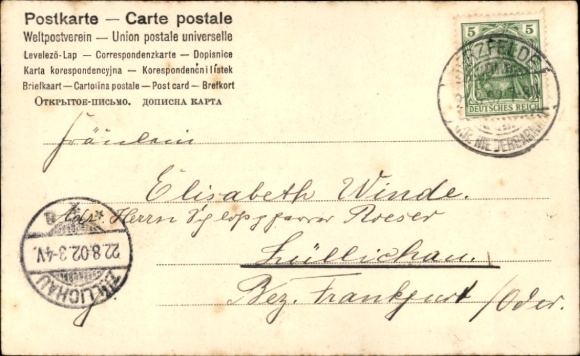 Postkarte — Carte postale
Weltpostverein — Union postale universelle
Levelező-Lap — Correspondenzkarte — Dopisnice
Karta korespondencyjna — Korespondenční lístek
Briefkaart — Cartolina postale — Post card — Brefkort
Открытое-письмо. дописна карта
5 5
DEUTSCHES REICH
Fräulein
Elisabeth Winde.
Herrn Schlosspfarrer Roeser
Züllichau.
Bez. Frankfurt /Oder.
22.8.02.3-4V.
ZÜLLICHAU